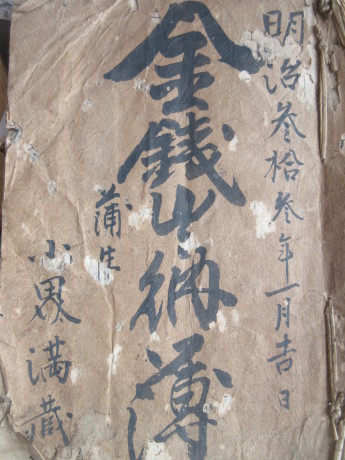 明治参拾参年一月十吉日
金銭出納簿
蒲生
小界満蔵